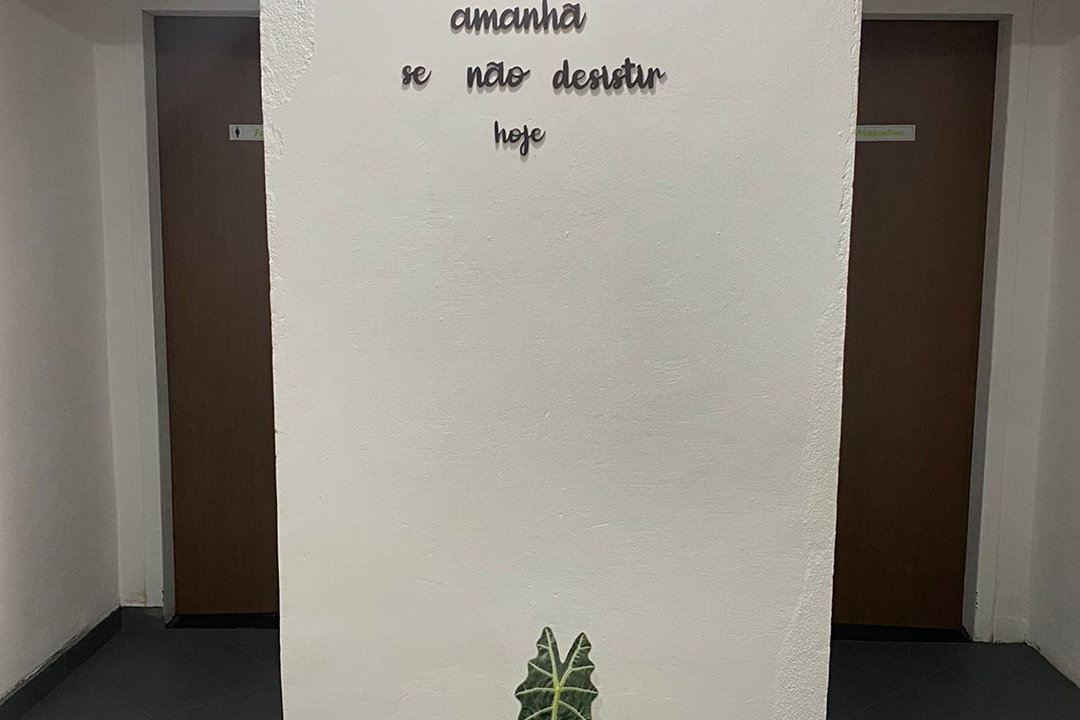 amanhã
se não desistir
hoje
Masculino